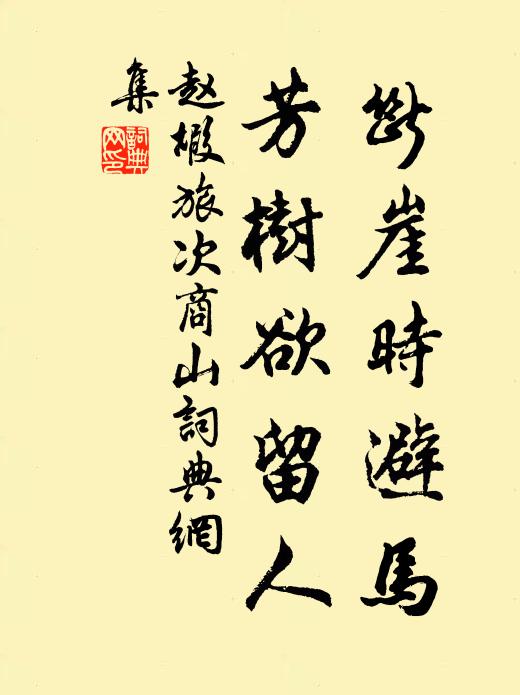 斷崖時避馬
芳樹欲留人
赵嘏旅次商山詞典網
集
詞典
网印